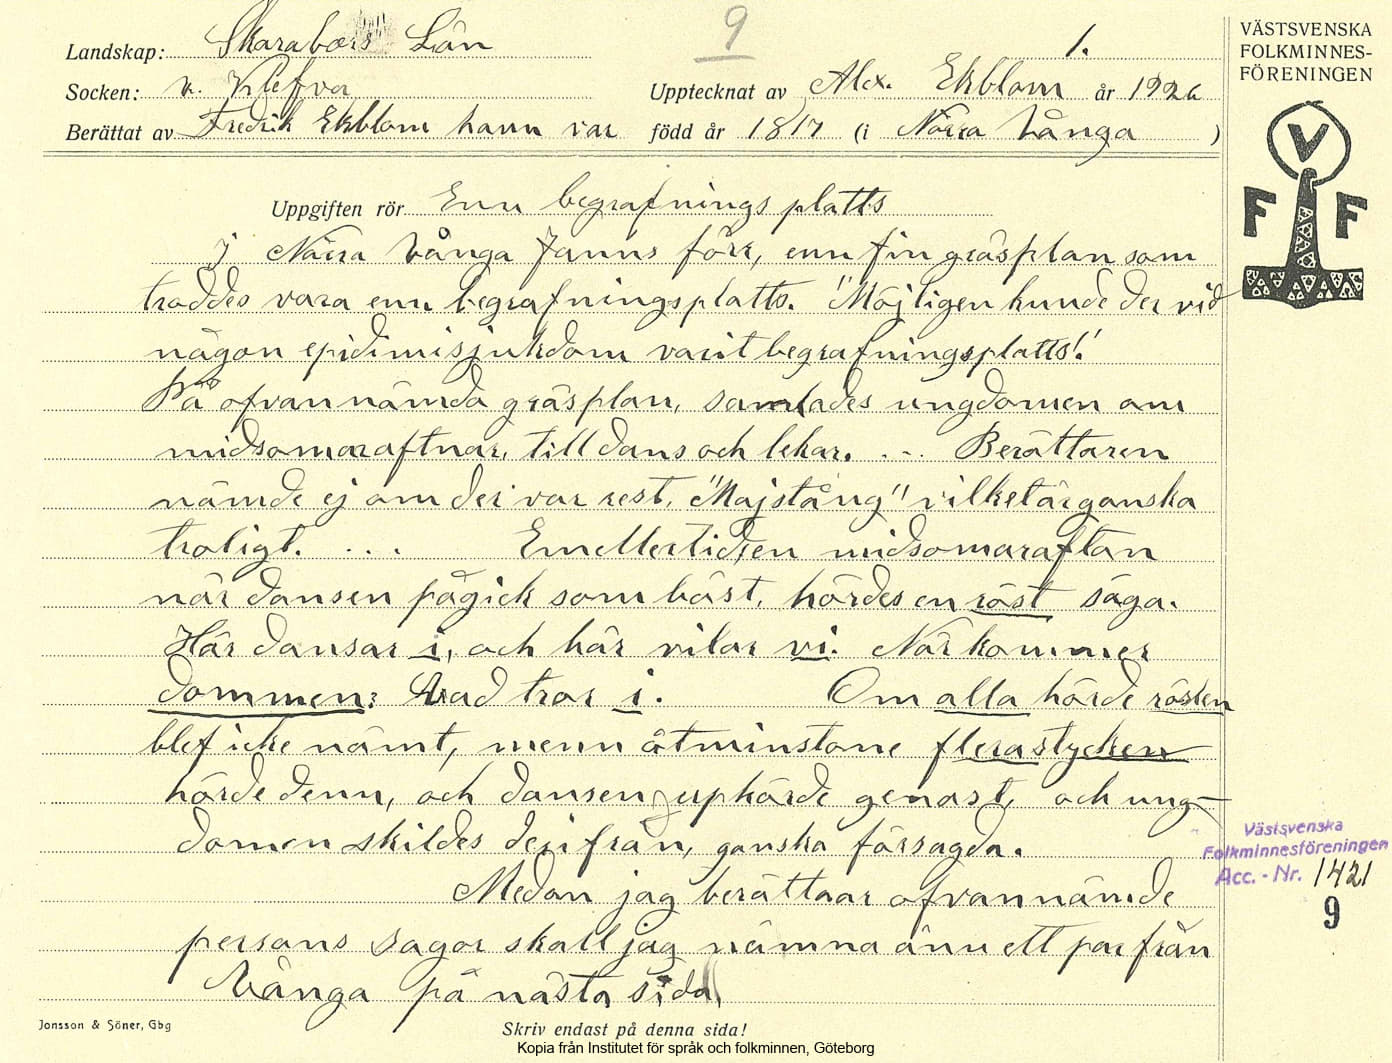 9
1.
Landskap: Skarabors Län
Socken: n. Klefva
Upptecknat av Alex. Ekblom år 1926
Berättat av Fredrik Ekblom hann var född år 1817 (i Nörra Vånga )
Uppgiften rör Enn begrafnings platts
I Nörra Vånga fanns förr, enn fin gräsplan som
troddes vara enn begrafningsplatts. "Möjligen kunde der vid
någon epidimisjukdom varit begrafningsplatts!"
På ofvannämda gräsplan, samlades ungdomen om
midsomaraftnar, till dans och lekar. . - . Berättaren
nämde ej om der var rest, "Majstång" vilket är ganska
troligt. . . . Emellertid, en midsomarafton
när dansen pågick som bäst, hördes en röst säga.
Här dansar i, och här vilar vi. När kommer
dommen: Vad tror i. Om alla hörde rösten
blef icke nämt, menn åtminstone flera stycken
hörde denn, och dansen uphörde genast, och ung-
domen skildes derifrån, ganska försagda.
Medan jag berättaar ofvannämde
persons sagor skall jag nämna ännu ett par från
Vånga på nästa sida.
Jonsson & Söner, Gbg
Skriv endast på denna sida!
Kopia från Institutet för språk och folkminnen, Göteborg
VÄSTSVENSKA
FOLKMINNES-
FÖRENINGEN
V
F F
Västsvenska
Folkminnesföreningen
Acc. - Nr. 1421
9